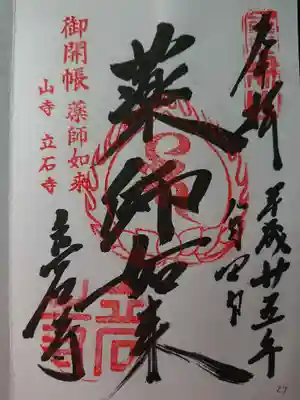 奉拝
平成廿五年
八月四日
薬師如来
立石寺
御開帳
薬師如来
山寺 立石寺
27